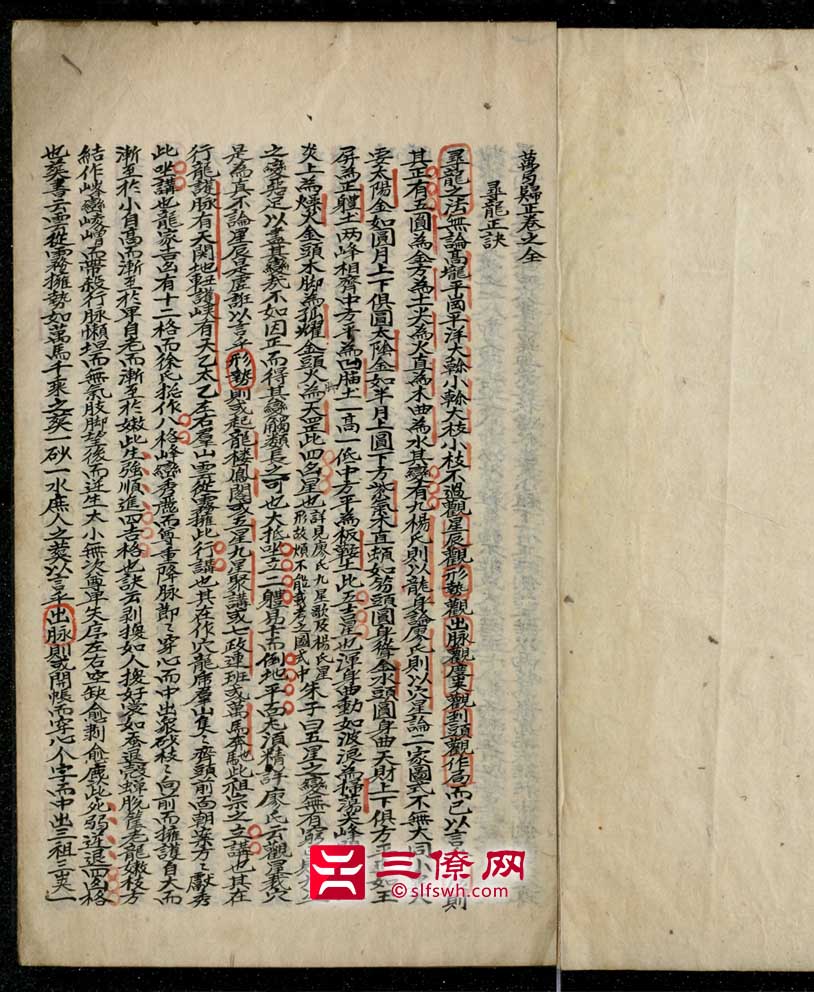 萬局歸正卷之全
尋龍正訣
尋龍之法無論高壠平崗平洋大榦小榦大枝小枝不過觀星辰觀形勢觀出脉觀慶夹觀到頭觀作局而已以言乎則
其正有五圓為金方為土尖為火直為木曲為水其變有九楊氏則以龍身論廖氏則以穴星論二家圖式不無大同小大
要太陽金如圓月上下俱圓太陰金如半月上圓下方紫氣木直頓如笏頭圓身聳金水頭圓身曲天財上下俱方平正如玉
屏為正軆土两峰相齊中方平為凹腦土一高一低中方平為板鞍土此五吉星也渾身曲動如波浪為掃蕩尖峰
炎上為燥火金頭木脚為孤耀金頭火脚為天罡此四凶星也詳見廖氏九星歌及楊氏星形故煩不能載考之圖式中朱子曰五星之變無有窮
之變爲足以盡其變哉不如因正而得其變觸類長之可也大抵坐立二軆易上而倒地平面尤須精詳廖氏云觀星裁穴
是為真不論星辰是虛誑以言乎形勢則或起龍楼鳳閣或五星九星聚講或七政連班或萬馬奔馳此祖宗之立講也其在
行龍護脉有天関地軸護峽有天乙太乙左右羣山雲從霧擁此行講也其在作穴龍席羣山隻〻齊頭前面朝案方〻獻秀
此坐講也龍家吉凶有十二格而徐氏捴作八格峰巒秀麗而尊重降脉節〻穿心而中出眾砂枝〻向前而擁護自大而
漸至於小自高而漸至於卑自老而漸至於嫩此生強順進四吉格也訣云剥換如人換好裳如蚕退殼蟬脱筐老龍嫩枝方
結作峰巒崚嶒而帶殺行脉懶坦而無氣肢脚望後而逆生大小無次尊卑失序左右空缺愈剥愈麄此死弱逆退四凶格
也葵書云雲從霧擁勢如萬馬千乘之葵一砂一水庶人之葵以言乎出脉則或開帳而穿心个字而中出三祖三出一
三僚网
©slfswh.com